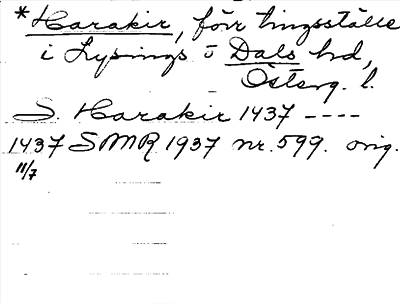 *Harakir, förr tingsställe
i Lysings o Dals hd,
Österg. l.
S. Harakir 1437 ----
1437 SMR 1937 nr. 599. orig.
11/7